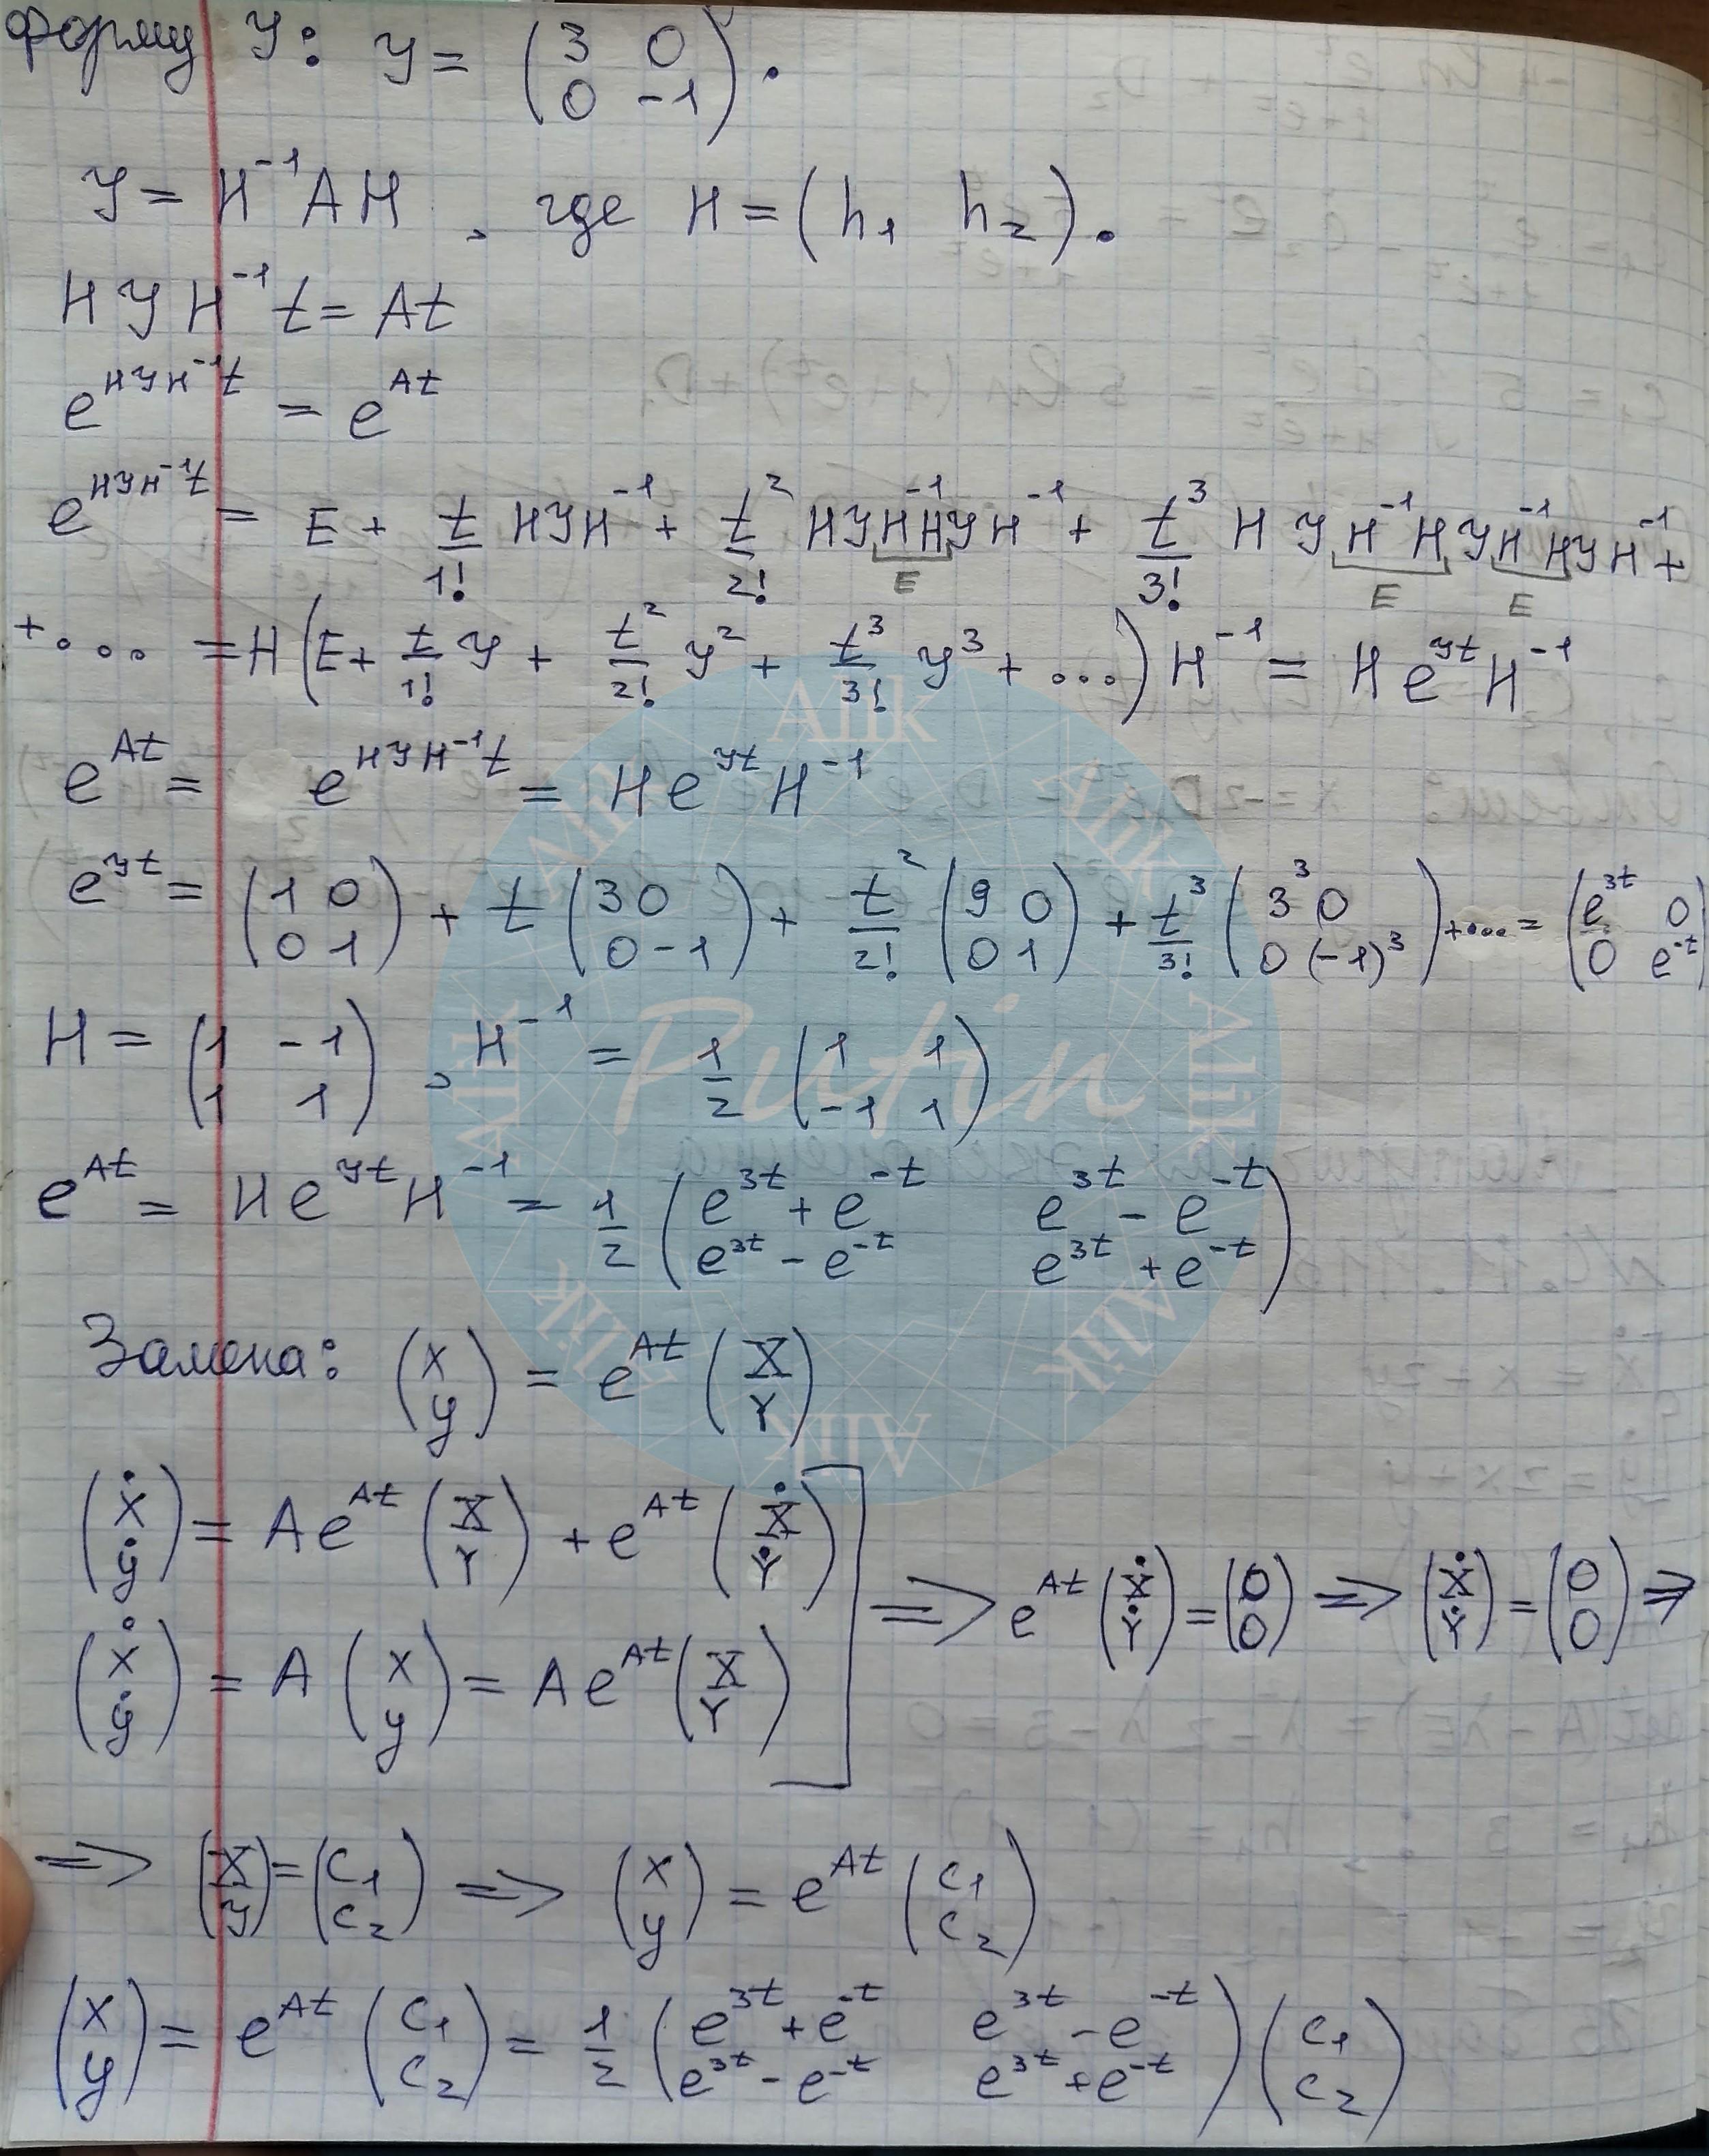 форму У: У = (3 0; 0 -1).
У = H⁻¹AH, где H = (h₁ h₂).
HУH⁻¹t = At
e^{HУH⁻¹t} = e^{At}
e^{HУH⁻¹t} = E + t/1! HУH⁻¹ + t²/2! HУHH⁻¹УH⁻¹ + t³/3! HУH⁻¹HУH⁻¹HУH⁻¹ +
E E E
+... = H(E + t/1! У + t²/2! У² + t³/3! У³ + ...)H⁻¹ = He^{Уt}H⁻¹
e^{At} = e^{HУH⁻¹t} = He^{Уt}H⁻¹
e^{Уt} = (1 0; 0 1) + t(3 0; 0 -1) + t²/2! (9 0; 0 1) + t³/3! (3³ 0; 0 (-1)³) + ... = (e^{3t} 0; 0 e^{-t})
H = (1 -1; 1 1), H⁻¹ = 1/2 (1 1; -1 1)
e^{At} = He^{Уt}H⁻¹ = 1/2 (e^{3t}+e^{-t} e^{3t}-e^{-t}; e^{3t}-e^{-t} e^{3t}+e^{-t})
Замена: (x; y) = e^{At} (X; Y)
(ẋ; ẏ) = Ae^{At} (X; Y) + e^{At} (Ẋ; Ẏ)
(ẋ; ẏ) = A (x; y) = Ae^{At} (X; Y)
=> e^{At} (Ẋ; Ẏ) = (0; 0) => (Ẋ; Ẏ) = (0; 0) =>
=> (X; Y) = (c₁; c₂) => (x; y) = e^{At} (c₁; c₂)
(x; y) = e^{At} (c₁; c₂) = 1/2 (e^{3t}+e^{-t} e^{3t}-e^{-t}; e^{3t}-e^{-t} e^{3t}+e^{-t}) (c₁; c₂)
Alik
Alik
Alik
Alik
Alik
Alik
Alik
Alik
Putin